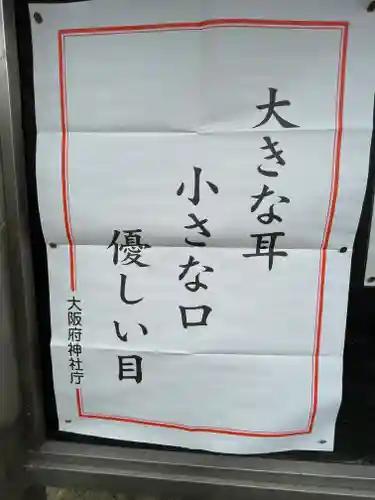 大きな耳
小さな口
優しい目
大阪府神社庁